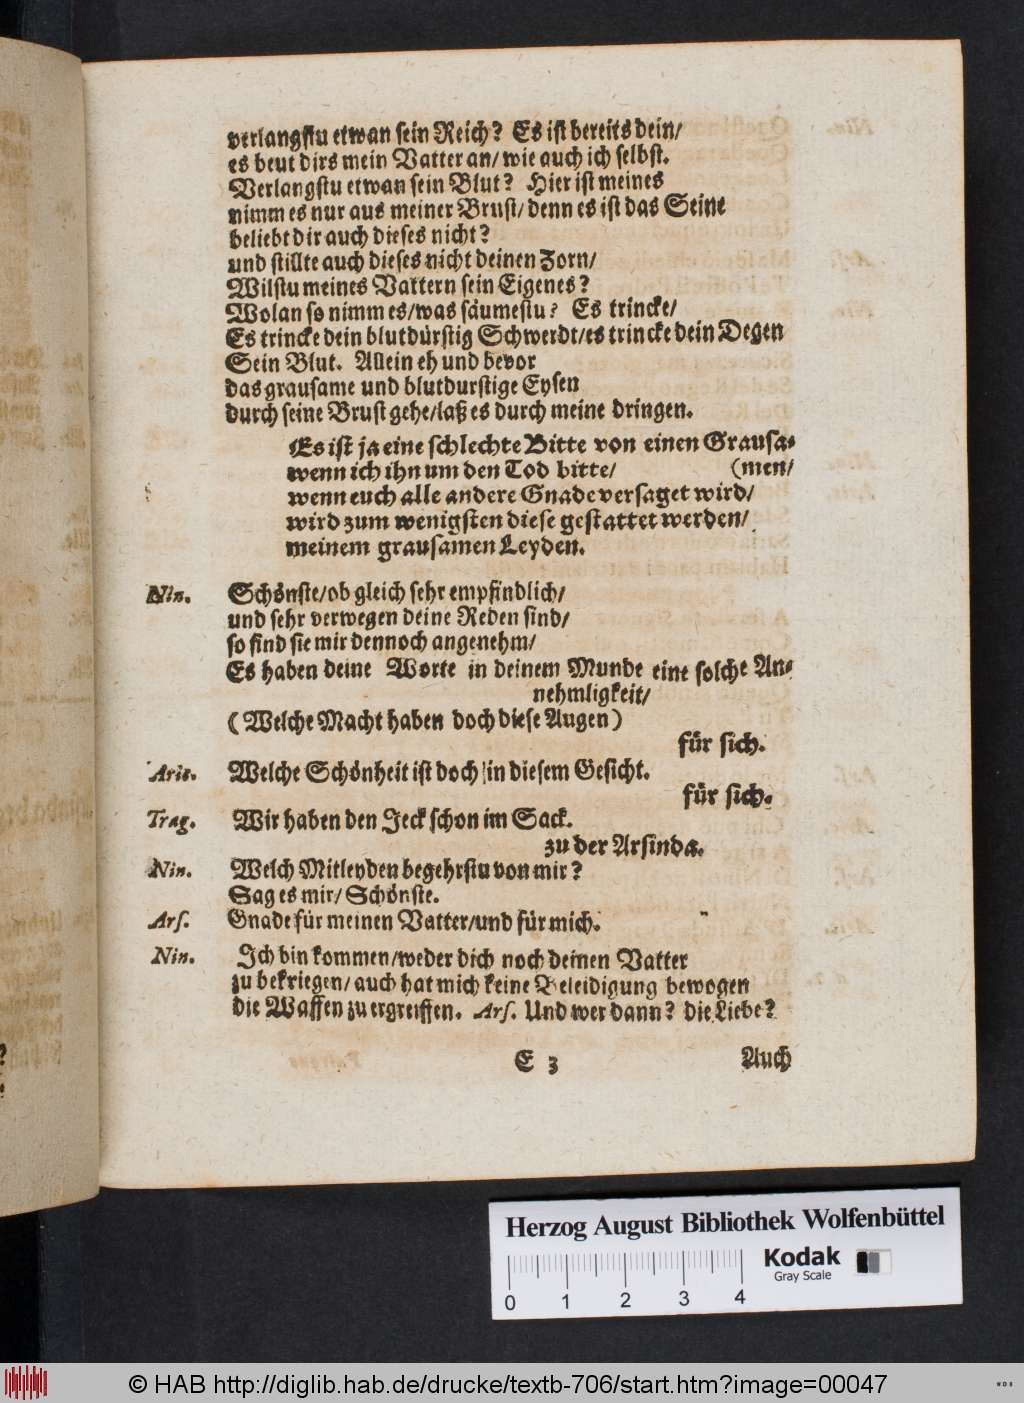 verlangstu etwan sein Reich? Es ist bereits dein/
es beut dirs mein Vatter an/ wie auch ich selbst.
Verlangstu etwan sein Blut? Hier ist meines
nimm es nur aus meiner Brust/ denn es ist das Seine
beliebt dir auch dieses nicht?
und stillte auch dieses nicht deinen Zorn/
Wilstu meines Vattern sein Eigenes?
Wolan so nimm es/ was säumestu? Es trincke/
Es trincke dein blutdürstig Schwerdt/ es trincke dein Degen
Sein Blut. Allein eh und bevor
das grausame und blutdurstige Eysen
durch seine Brust gehe/ laß es durch meine dringen.
Es ist ja eine schlechte Bitte von einen Grausa-
wenn ich ihn um den Tod bitte/ (men/
wenn euch alle andere Gnade versaget wird/
wird zum wenigsten diese gestattet werden/
meinem grausamen Leyden.
Nin. Schönste/ ob gleich sehr empfindlich/
und sehr verwegen deine Reden sind/
so sind sie mir dennoch angenehm/
Es haben deine Worte in deinem Munde eine solche An-
nehmligkeit/
(Welche Macht haben doch diese Augen)
für sich.
Aris. Welche Schönheit ist doch in diesem Gesicht.
für sich.
Trag. Wir haben den Jeck schon im Sack.
zu der Arsinda.
Nin. Welch Mitleyden begehrstu von mir?
Sag es mir/ Schönste.
Ars. Gnade für meinen Vatter/ und für mich.
Nin. Ich bin kommen/ weder dich noch deinen Vatter
zu bekriegen/ auch hat mich keine Beleidigung bewogen
die Waffen zu ergreiffen. Ars. Und wer dann? die Liebe?
E 3 Auch
Herzog August Bibliothek Wolfenbüttel
Kodak
Gray Scale
0 1 2 3 4
© HAB http://diglib.hab.de/drucke/textb-706/start.htm?image=00047